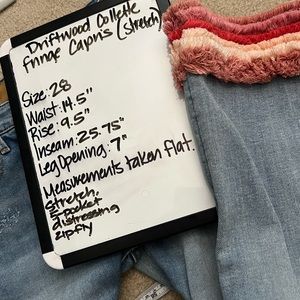 Driftwood Collette
fringe Capris (stretch)
Size: 28
Waist: 14.5"
Rise: 9.5"
Inseam: 25.75"
Leg Opening: 7"
Measurements taken flat.
stretch,
5 pocket
distressing
zip fly